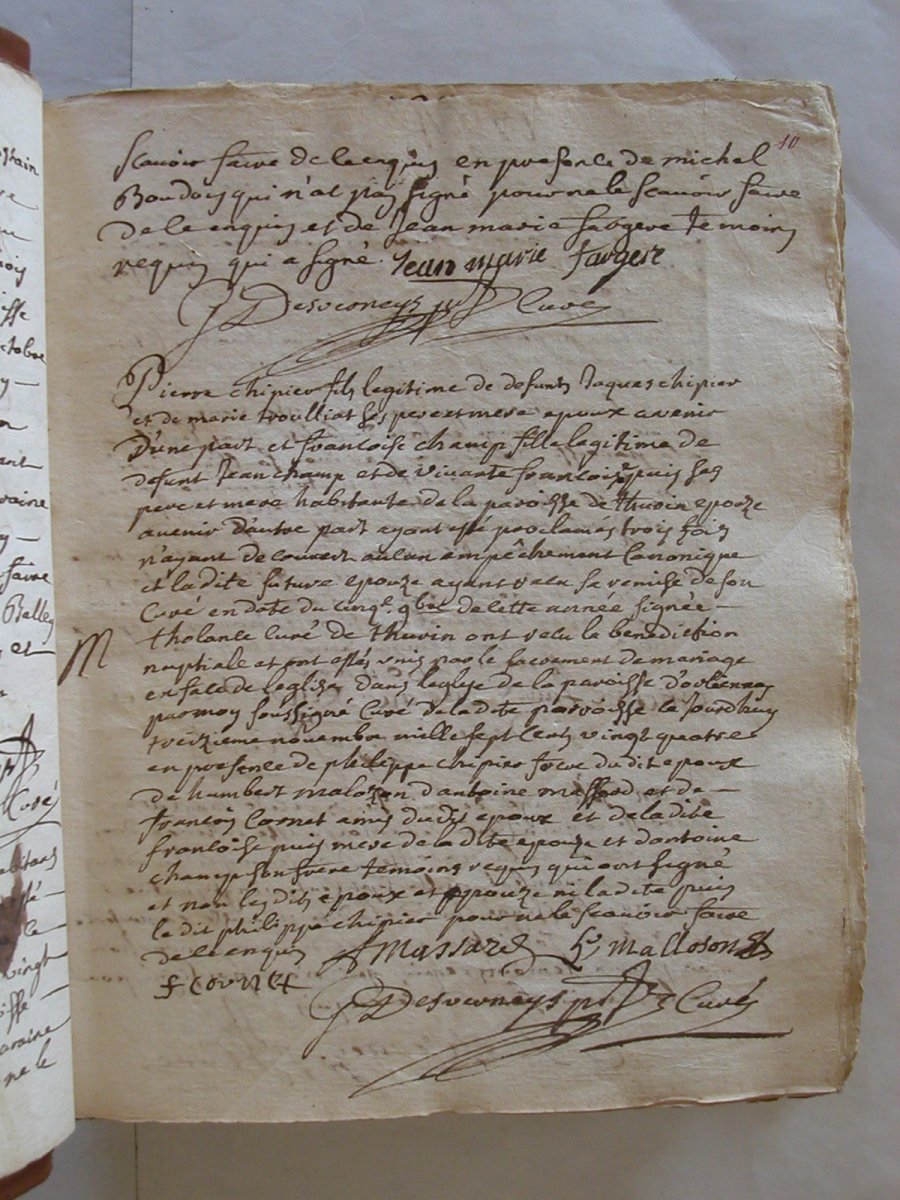 10
scauoir faire de le enquis en presence de michel
Boudoy qui n'at pas signé pour ne le scauoir faire
de le enquis et de Jean marie fargere temoins
requis qui a signé. Jean marie fargere
Desverneys curé
Pierre chipier fils legitime de defunts Jaques chipier
et de marie troulliat ses pere et mere epoux avenir
D'une part et francoise champ fille legitime de
defunt Jean champ et de vivante francoise puis ses
pere et mere habitante de la paroisse de thurin epouze
avenir d'autre part ayant esté proclamés trois fois
n'ayant decouvert aucun empêchement Canonique
et la dite future epouze ayant recu sa remise de son
Curé en date du cinq.e 9bre de cette année signée
tholance Curé de thurin ont recu la benediction
M
nuptiale et ont estés unis par le sacrement de mariage
en face de leglise dans leglise de la paroisse d'orliennas
par moy soussigné Curé de la dite parroisse ce Jourdhuy
treizieme novembre mille sept cens vingt quatre
en presence de philippe chipier frere du dit epoux
de humbert malozon d'antoine massard et de
francois Cornet amis du dit epoux et de la dite
francoise puis mere de la dite epouze et d'antoine
champ son frere temoins requis qui ont signé
et non les dits epoux et epouze ni la dite puis
le dit philippe chipier pour ne le scauoir faire
de le enquis A Massard h malloson
f cornet
Desverneys Curé